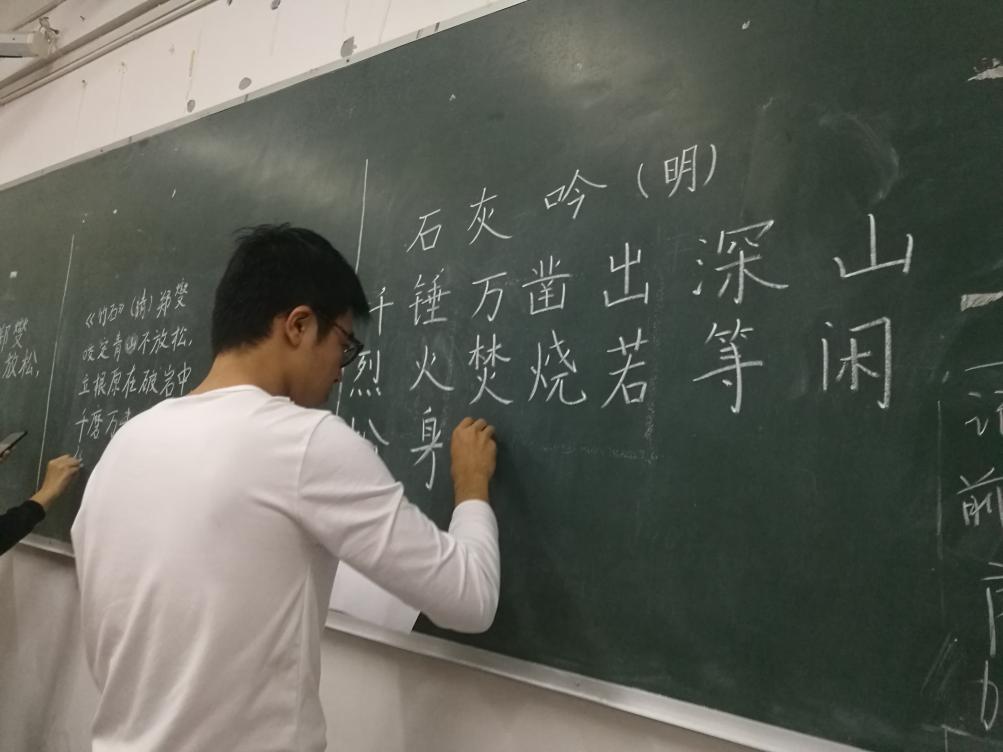 郑燮
放松,
《竹石》(清) 郑燮
咬定青山不放松,
立根原在破岩中
千磨万
石灰吟 (明)
千锤万凿出深山
烈火焚烧若等闲
身
前